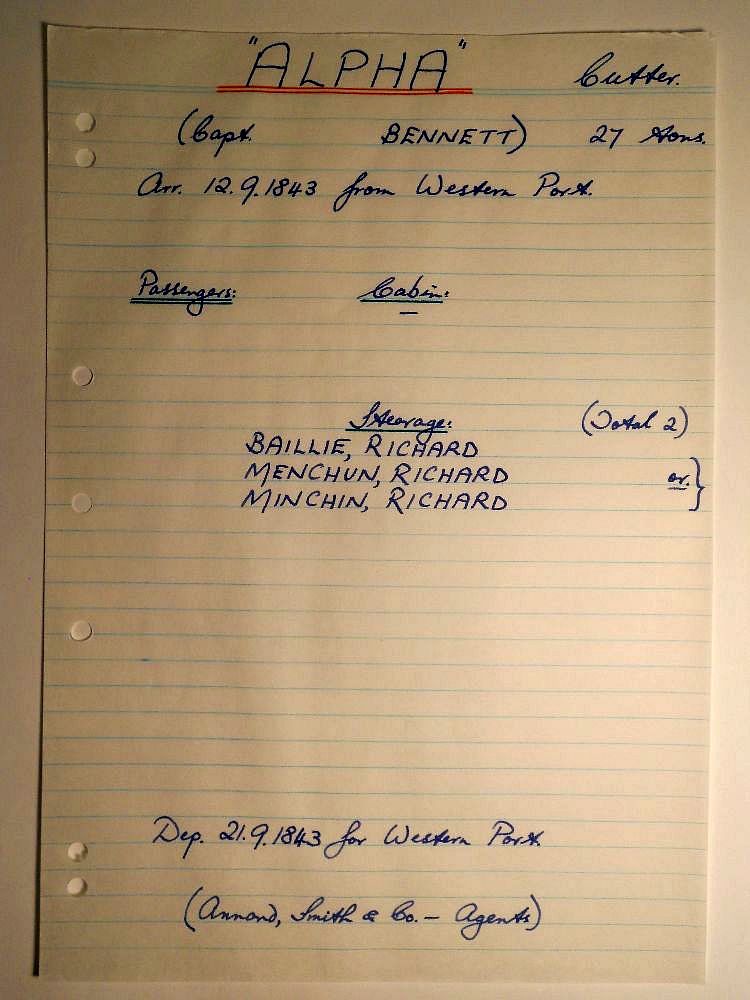 "ALPHA" Cutter.
(Capt. BENNETT) 27 tons.
Arr. 12.9.1843 from Western Port.
Passengers: Cabin:
—
Steerage: (Total 2)
BAILLIE, RICHARD
MENCHUN, RICHARD or. }
MINCHIN, RICHARD
Dep. 21.9.1843 for Western Port.
(Annand, Smith & Co. — Agents)